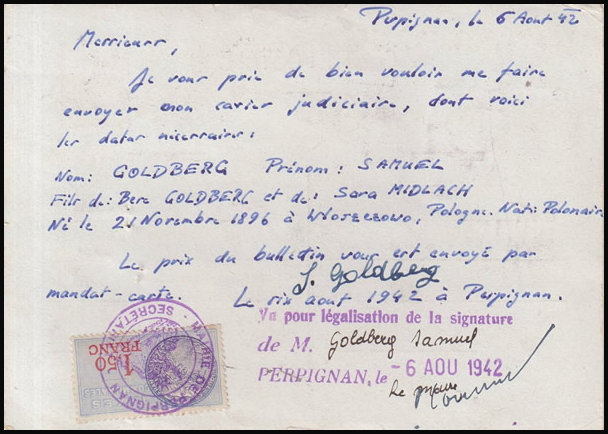 Perpignan, le 6 Aout 42
Messieurs,
Je vous prie de bien vouloir me faire
envoyer mon casier judiciaire, dont voici
les dates nécessaires:
Nom: GOLDBERG Prénom: SAMUEL
Fils de: Bere GOLDBERG et de: Sara MIDLACH
Né le 21 Novembre 1896 à Pologne. Nat: Polonaise
Le prix du bulletin vous est envoyé par
mandat-carte. Le six aout 1942 à Perpignan.
S. Goldberg
Vu pour légalisation de la signature
de M. Goldberg Samuel
PERPIGNAN, le -6 AOU 1942
Le maire
1.50
FRANC
MAIRIE DE PERPIGNAN